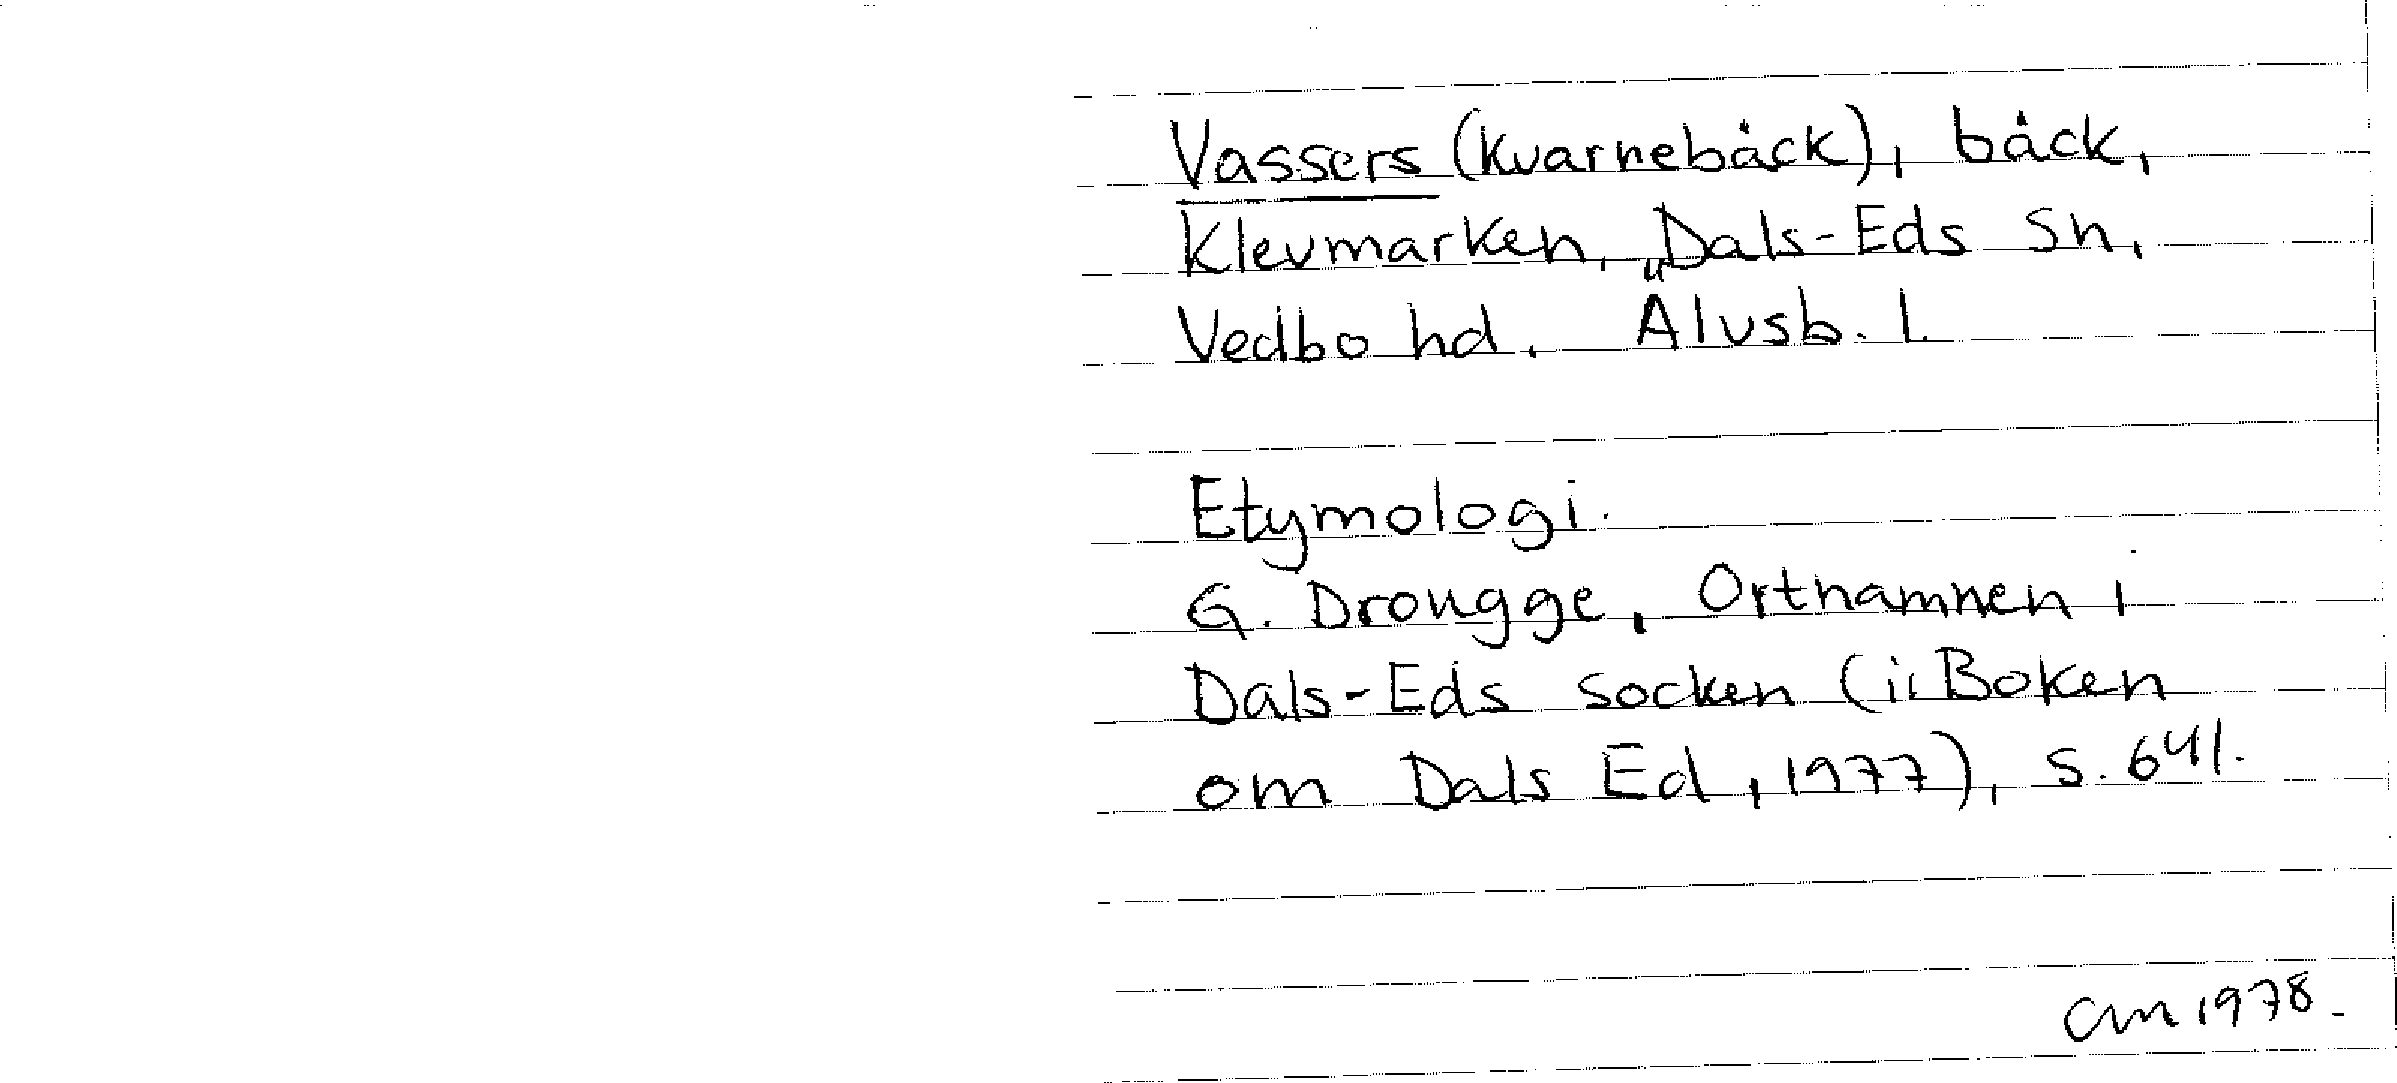 Vassers (Kvarnebäck), bäck,
Klevmarken, Dals-Eds sn,
Vedbo hd. Älvsb. l.
Etymologi.
G. Drougge, Ortnamnen i
Dals-Eds socken (i: Boken
om Dals Ed, 1977), s. 641.
CM 1978.